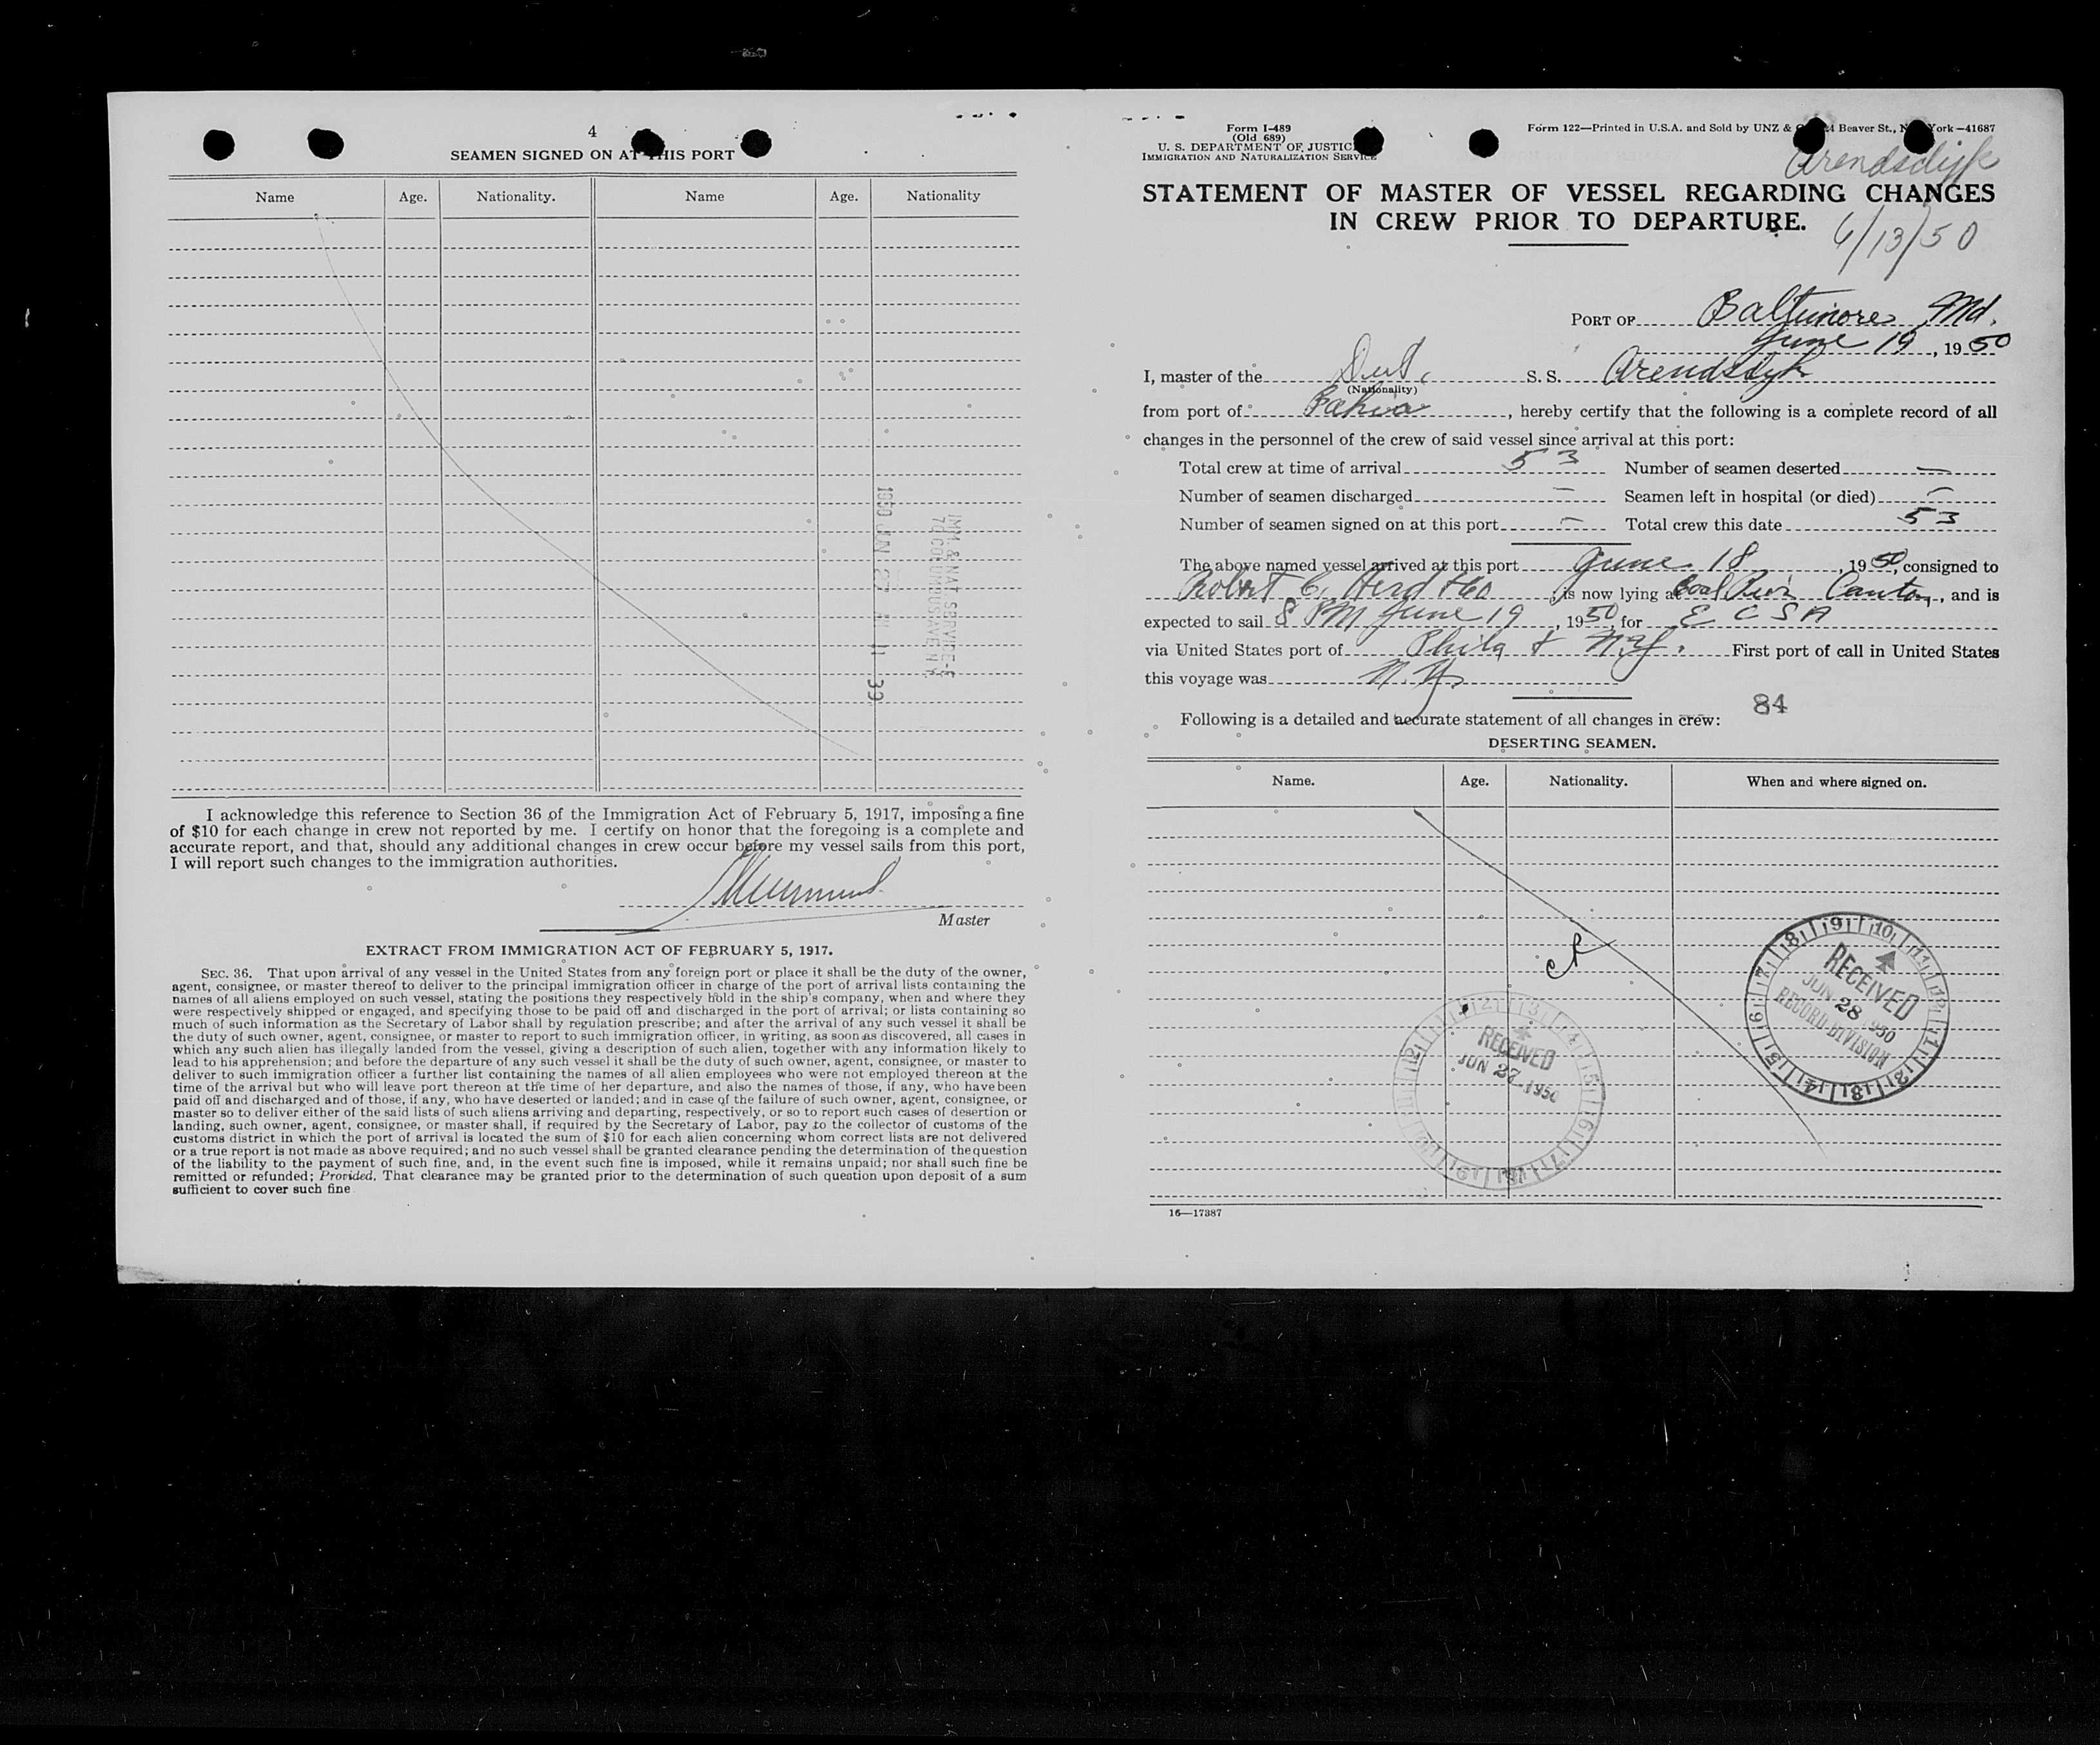 4
SEAMEN SIGNED ON AT THIS PORT
Name Age. Nationality. Name Age. Nationality
1950 JUN 22 AM 11 39
IMM. & NAT. SERVICE
70 COLUMBUS AVE N.Y.
I acknowledge this reference to Section 36 of the Immigration Act of February 5, 1917, imposing a fine
of $10 for each change in crew not reported by me. I certify on honor that the foregoing is a complete and
accurate report, and that, should any additional changes in crew occur before my vessel sails from this port,
I will report such changes to the immigration authorities.
Master
EXTRACT FROM IMMIGRATION ACT OF FEBRUARY 5, 1917.
SEC. 36. That upon arrival of any vessel in the United States from any foreign port or place it shall be the duty of the owner,
agent, consignee, or master thereof to deliver to the principal immigration officer in charge of the port of arrival lists containing the
names of all aliens employed on such vessel, stating the positions they respectively hold in the ship's company, when and where they
were respectively shipped or engaged, and specifying those to be paid off and discharged in the port of arrival; or lists containing so
much of such information as the Secretary of Labor shall by regulation prescribe; and after the arrival of any such vessel it shall be
the duty of such owner, agent, consignee, or master to report to such immigration officer, in writing, as soon as discovered, all cases in
which any such alien has illegally landed from the vessel, giving a description of such alien, together with any information likely to
lead to his apprehension; and before the departure of any such vessel it shall be the duty of such owner, agent, consignee, or master to
deliver to such immigration officer a further list containing the names of all alien employees who were not employed thereon at the
time of the arrival but who will leave port thereon at the time of her departure, and also the names of those, if any, who have been
paid off and discharged and of those, if any, who have deserted or landed; and in case of the failure of such owner, agent, consignee, or
master so to deliver either of the said lists of such aliens arriving and departing, respectively, or so to report such cases of desertion or
landing, such owner, agent, consignee, or master shall, if required by the Secretary of Labor, pay to the collector of customs of the
customs district in which the port of arrival is located the sum of $10 for each alien concerning whom correct lists are not delivered
or a true report is not made as above required; and no such vessel shall be granted clearance pending the determination of the question
of the liability to the payment of such fine, and, in the event such fine is imposed, while it remains unpaid; nor shall such fine be
remitted or refunded; Provided, That clearance may be granted prior to the determination of such question upon deposit of a sum
sufficient to cover such fine.
Form I-489
(Old 689)
U. S. DEPARTMENT OF JUSTICE
IMMIGRATION AND NATURALIZATION SERVICE
Form 122—Printed in U.S.A. and Sold by UNZ & Beaver St., New York—41687
Arendsdijk
STATEMENT OF MASTER OF VESSEL REGARDING CHANGES
IN CREW PRIOR TO DEPARTURE.
6/13/50
PORT OF Baltimore Md.
June 19, 1950
I, master of the Dut. S. S. Arendsdyk
(Nationality)
from port of Bahia, hereby certify that the following is a complete record of all
changes in the personnel of the crew of said vessel since arrival at this port:
Total crew at time of arrival 53 Number of seamen deserted —
Number of seamen discharged — Seamen left in hospital (or died) —
Number of seamen signed on at this port — Total crew this date 53
The above named vessel arrived at this port June 18, 1950, consigned to
Robert C. Herd & Co, is now lying at Coal Pier Canton, and is
expected to sail 8 PM June 19, 1950, for E C S A
via United States port of Phila & N.Y. First port of call in United States
this voyage was N.Y.
84
Following is a detailed and accurate statement of all changes in crew:
DESERTING SEAMEN.
Name. Age. Nationality. When and where signed on.
RECEIVED
JUN 28 1950
RECORD DIVISION
RECEIVED
JUN 27 1950
16—17387